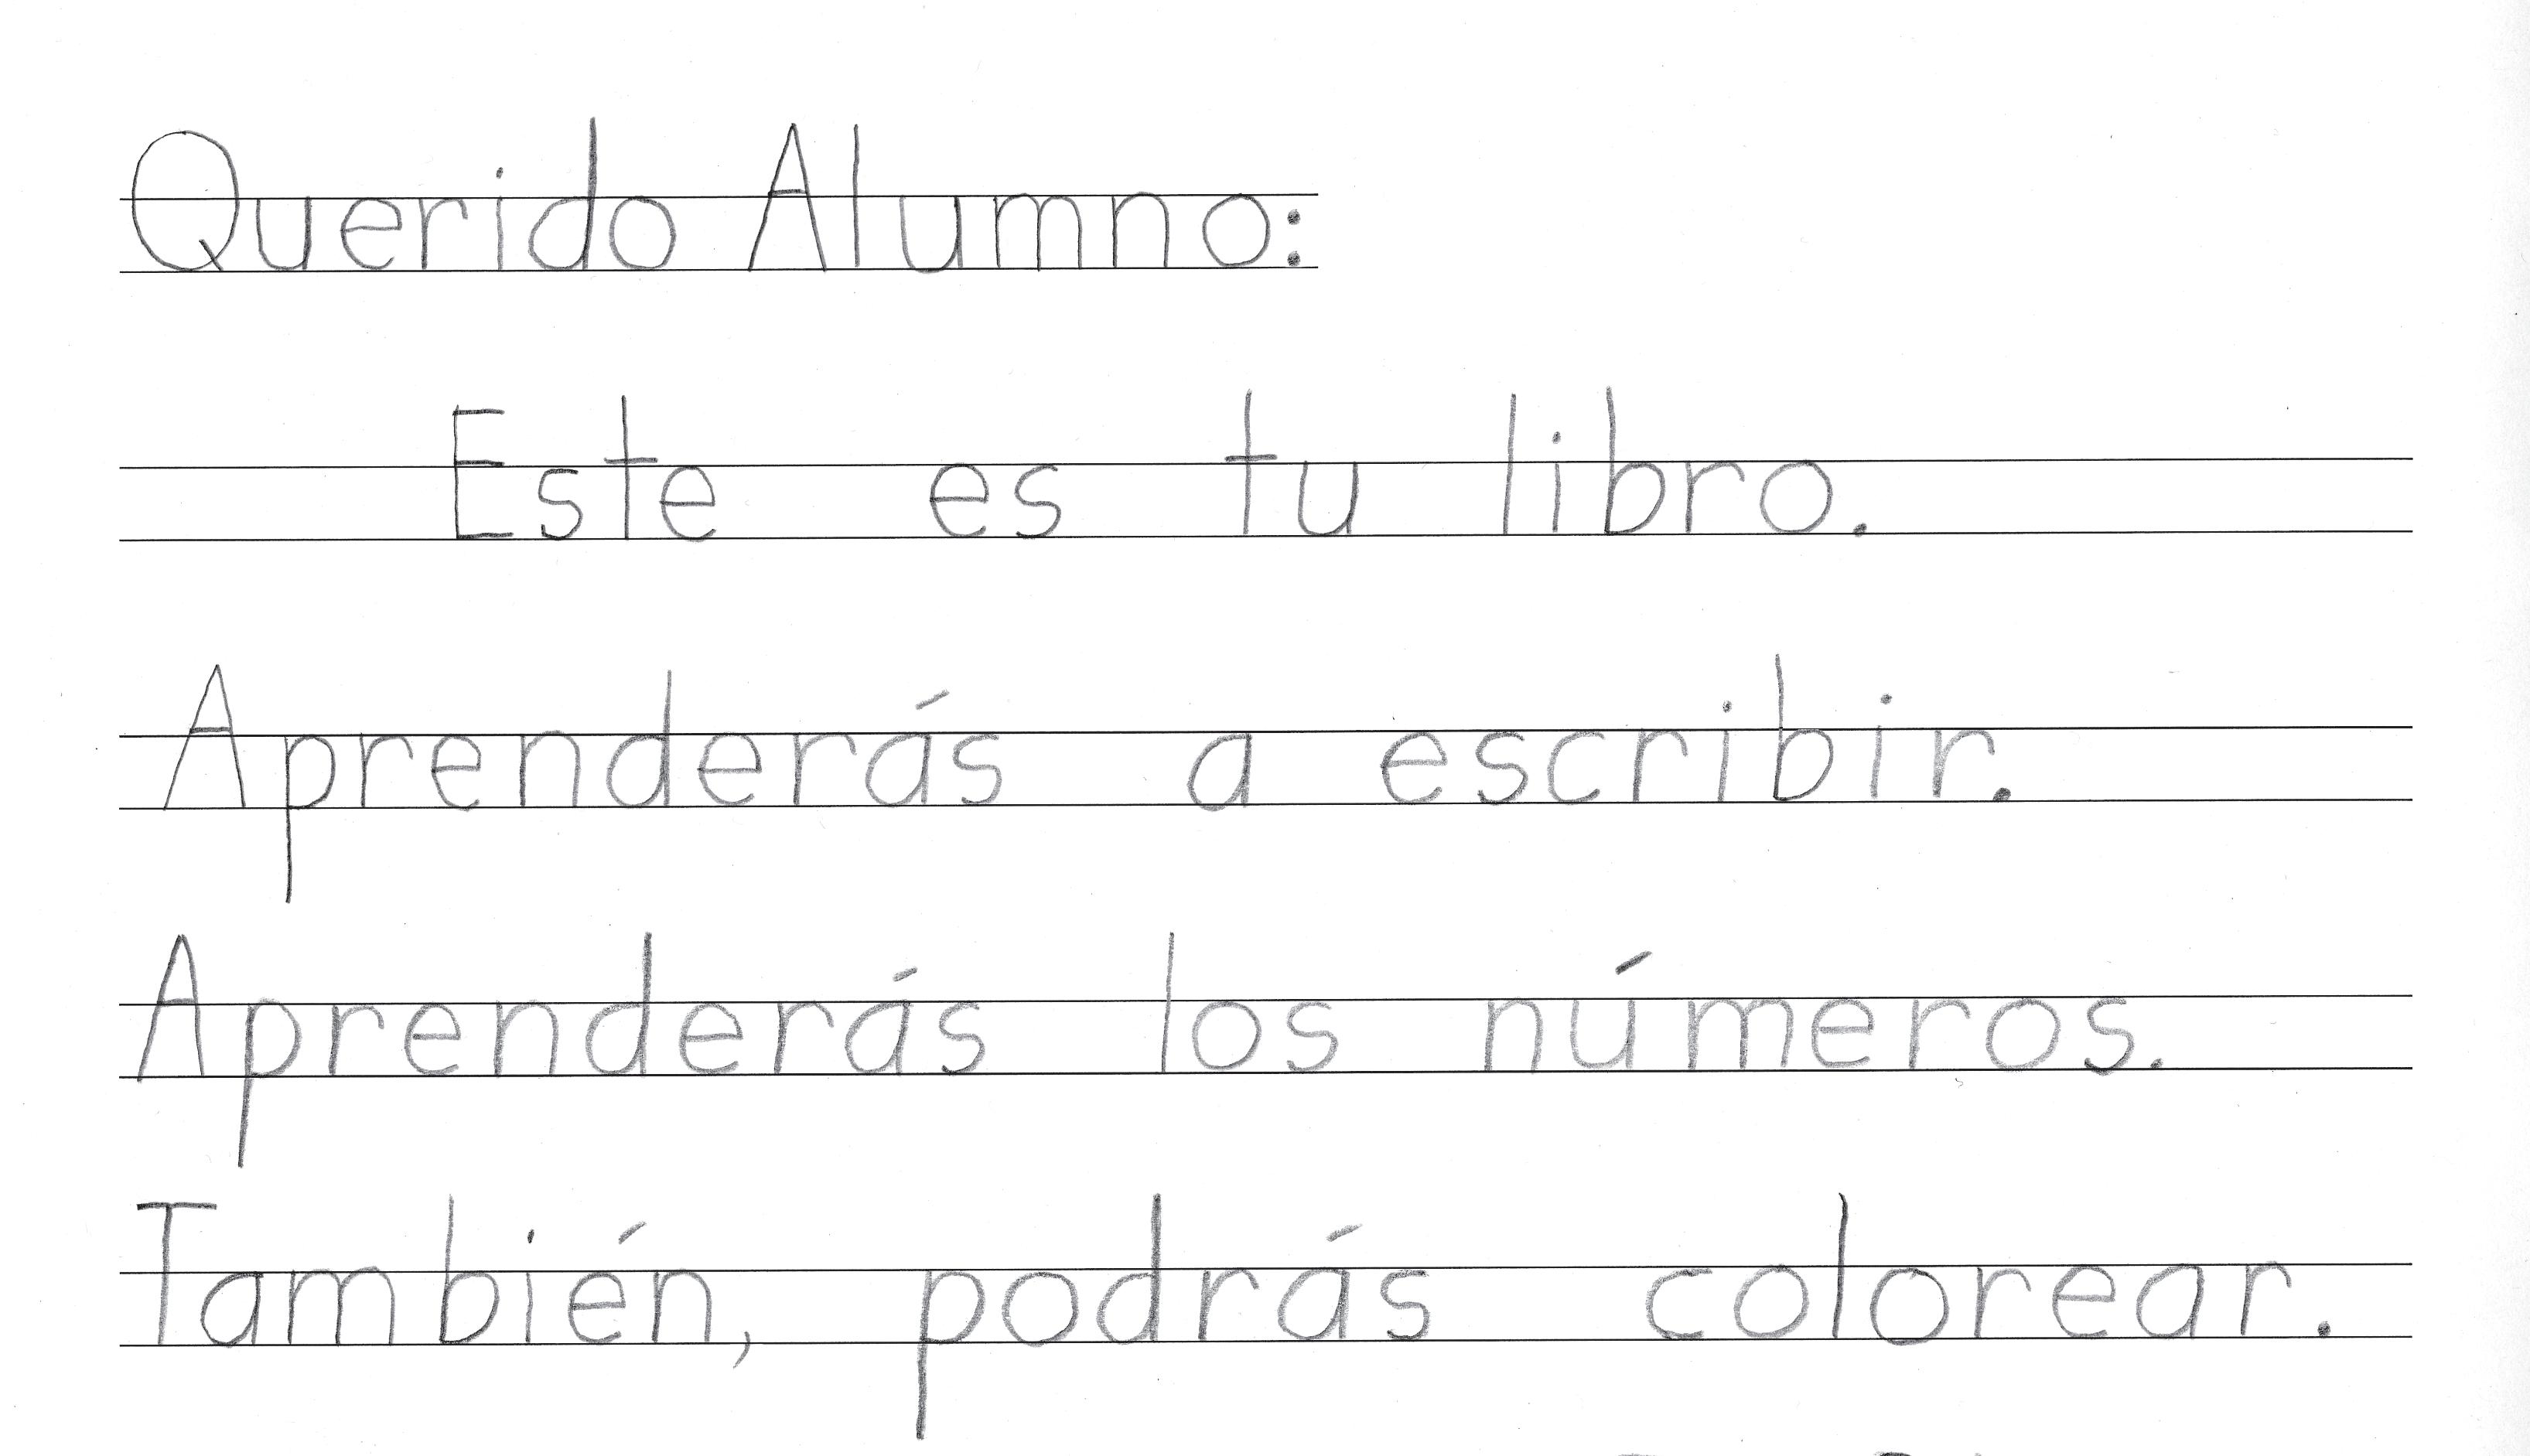 Querido Alumno:
Este es tu libro.
Aprenderás a escribir.
Aprenderás los números.
También, podrás colorear.